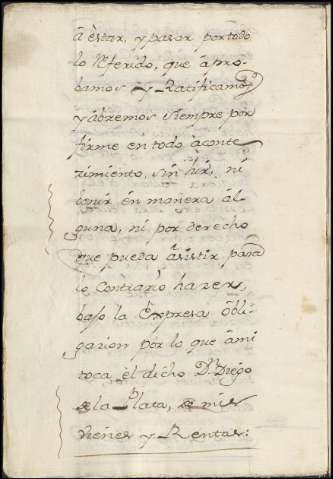 à estar, y pasar por todo
lo referido, que àpro-
bamos y Ratificamos,
y àbremos siempre por
firme en todo àconte-
zimiento, sin ni
venir en manera àl-
guna, ni por derecho
que pueda àsistir para
lo contrario hazer,
baso la Expresa òbli-
gazion por lo que àmi
toca el dicho Dn. Diego
de la Plata, de mis
vienes y Rentas: